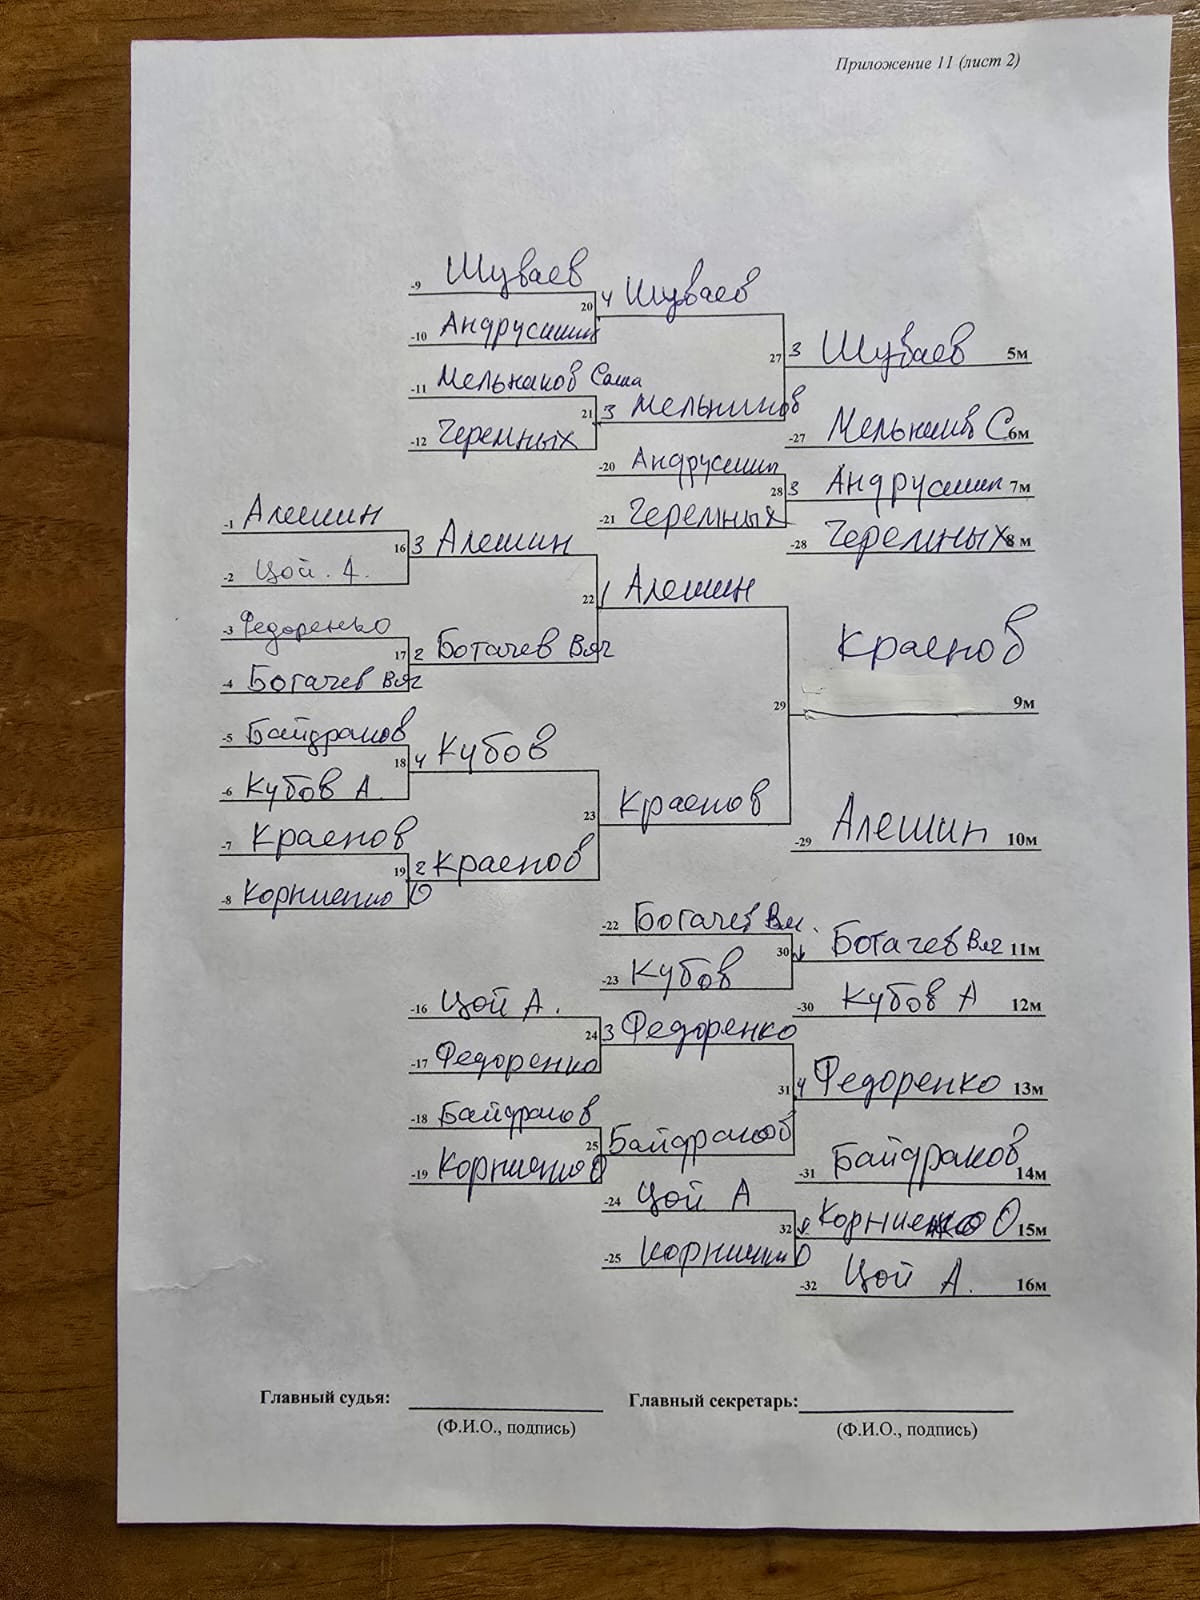 Приложение 11 (лист 2)
-9 Шуваев
20 4 Шуваев
-10 Андрусишин
27 3 Шуваев 5м
-11 Мельников Саша
21 3 Мельников
-12 Черемных
-27 Мельников С 6м
-20 Андрусишин
28 3 Андрусишин 7м
-21 Черемных
-28 Черемных 8 м
-1 Алешин
16 3 Алешин
-2 Цой. А.
22 1 Алешин
-3 Федоренко
17 2 Богачев Вяч
-4 Богачев Вяч
Краснов
29 9м
-5 Байдраков
18 4 Кубов
-6 Кубов А
23 Краснов
-7 Краснов
19 2 Краснов
-8 Корниенко О
-29 Алешин 10м
-22 Богачев Вяч.
30 Богачев Вяч 11м
-23 Кубов
-30 Кубов А 12м
-16 Цой А.
24 3 Федоренко
-17 Федоренко
31 4 Федоренко 13м
-18 Байдраков
25 Байдраков
-19 Корниенко О
-31 Байдраков 14м
-24 Цой А
32 Корниенко О 15м
-25 Корниенко О
-32 Цой А. 16м
Главный судья: Главный секретарь:
(Ф.И.О., подпись) (Ф.И.О., подпись)